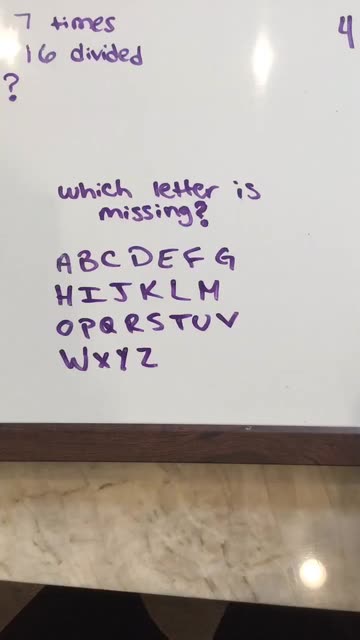 7 times
4
16 divided
?
which letter is
missing?
A B C D E F G
H I J K L M
O P Q R S T U V
W X Y Z